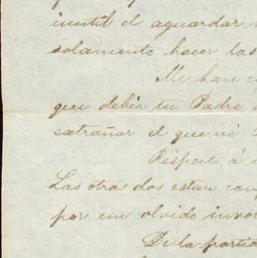 inutil el aguardar
solamente hacer las
Me han
que debia tu Padre
extrañar el que ni
Respecto á
Las otras dos estan
por un olvido invo
De la partid